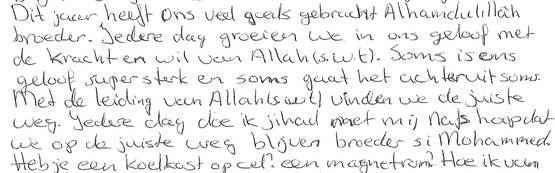 Dit jaar heeft ons veel goeds gebracht Alhamdulillâh
broeder. Jedere dag groeien we in ons geloof met
de kracht en wil van Allah (s.w.t). Soms is ons
geloof super sterk en soms gaat het achteruit soms.
Met de leiding van Allah (swt) vinden we de juiste
weg. Jedere dag doe ik jihad met mij Nafs hoop dat
we op de juiste weg blijven broeder si Mohammed.
Heb je een koelkast op cel? een magnetron? Hoe ik van